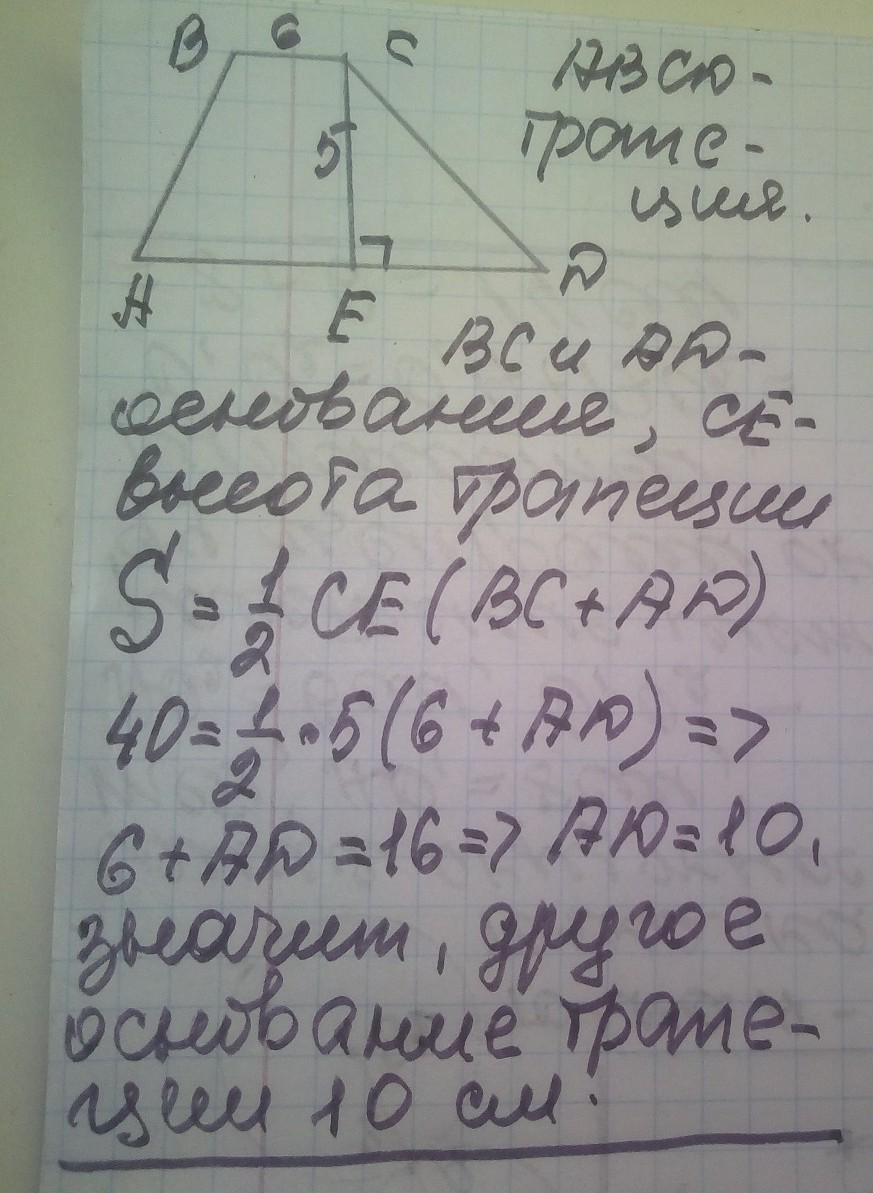 B 6 C
ABCD-
трапе-
ция.
5
A E D
BC и AD-
основания, CE-
высота трапеции
S = 1/2 CE (BC + AD)
40 = 1/2 · 5 (6 + AD) =>
6 + AD = 16 => AD = 10,
значит, другое
основание трапе-
ции 10 см.